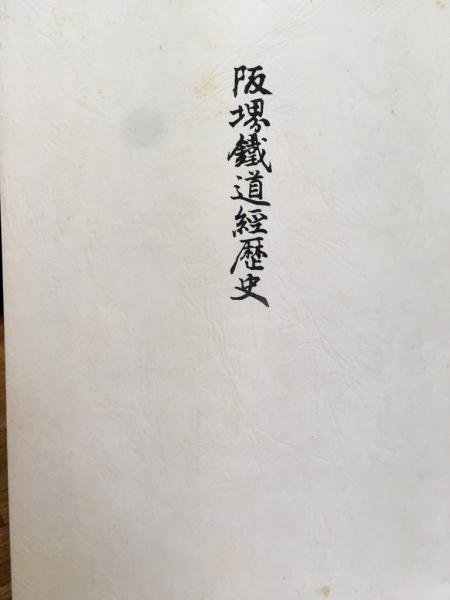 阪堺鐵道經歴史